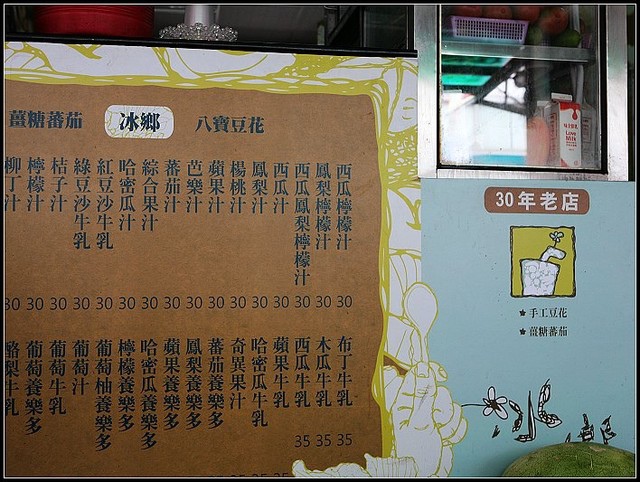 八寶豆花
冰鄉
薑糖蕃茄
西瓜檸檬汁 30
鳳梨檸檬汁 30
西瓜鳳梨檸檬汁 30
西瓜汁 30
鳳梨汁 30
楊桃汁 30
蘋果汁 30
芭樂汁 30
蕃茄汁 30
綜合果汁 30
哈密瓜汁 30
紅豆沙牛乳 30
綠豆沙牛乳 30
桔子汁 30
檸檬汁 30
柳丁汁 30
布丁牛乳 35
木瓜牛乳 35
西瓜牛乳 35
蘋果牛乳
哈密瓜牛乳
奇異果汁
蕃茄養樂多
鳳梨養樂多
蘋果養樂多
哈密瓜養樂多
檸檬養樂多
葡萄柚養樂多
葡萄汁
葡萄牛乳
葡萄養樂多
酪梨牛乳
30年老店
★手工豆花
★薑糖蕃茄
冰鄉